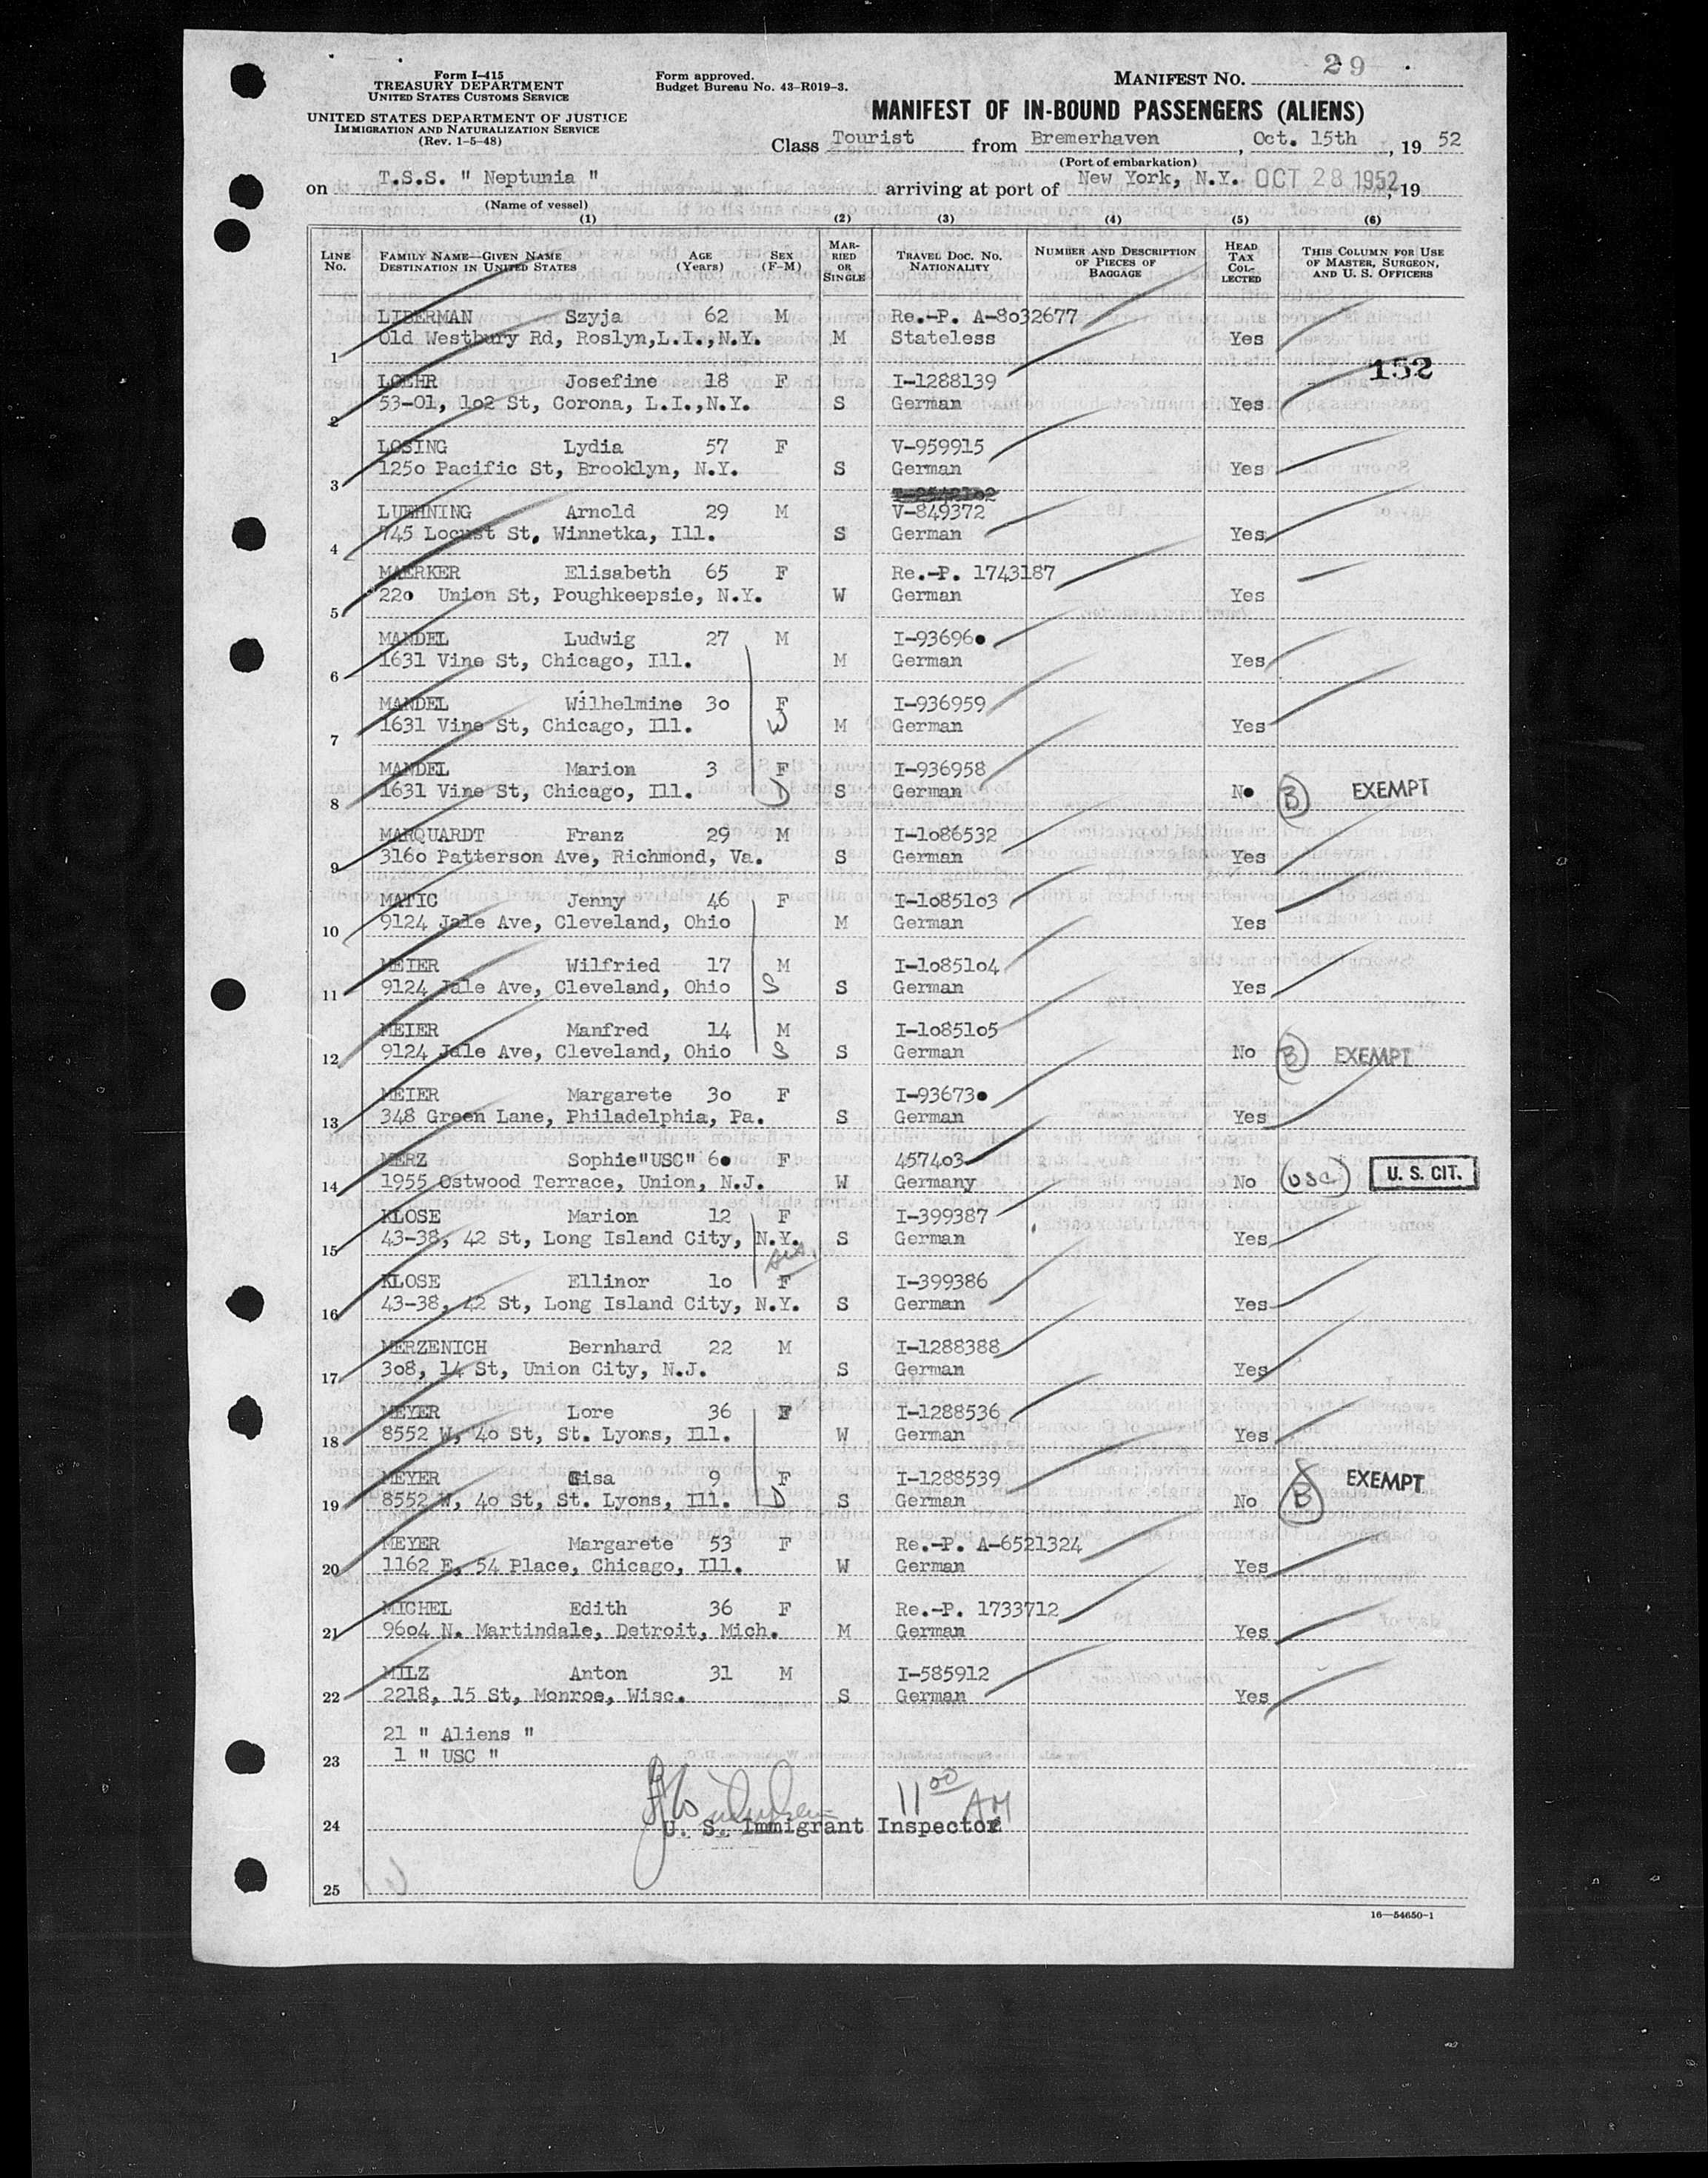 Form I-415
TREASURY DEPARTMENT
UNITED STATES CUSTOMS SERVICE
UNITED STATES DEPARTMENT OF JUSTICE
IMMIGRATION AND NATURALIZATION SERVICE
(Rev. 1-5-48)
Form approved.
Budget Bureau No. 43-R019-3.
MANIFEST NO. 29
MANIFEST OF IN-BOUND PASSENGERS (ALIENS)
Class Tourist from Bremerhaven, Oct. 15th, 19 52
(Port of embarkation)
on T.S.S. " Neptunia " arriving at port of New York, N.Y. OCT 28 1952, 19
(Name of vessel)
(1) (2) (3) (4) (5) (6)
LINE No. FAMILY NAME—GIVEN NAME DESTINATION IN UNITED STATES AGE (Years) SEX (F-M) MARRIED OR SINGLE TRAVEL DOC. NO. NATIONALITY NUMBER AND DESCRIPTION OF PIECES OF BAGGAGE HEAD TAX COLLECTED THIS COLUMN FOR USE OF MASTER, SURGEON, AND U. S. OFFICERS
LIBERMAN Szyja 62 M Re.-P. A-8032677
1 Old Westbury Rd, Roslyn,L.I.,N.Y. M Stateless Yes
152
LOEHR Josefine 18 F I-1288139
2 53-01, 1o2 St, Corona, L.I.,N.Y. S German Yes
LOSING Lydia 57 F V-959915
3 125o Pacific St, Brooklyn, N.Y. S German Yes
LUEHNING Arnold 29 M V-849372
4 745 Locust St, Winnetka, Ill. S German Yes
MAERKER Elisabeth 65 F Re.-P. 1743187
5 22o Union St, Poughkeepsie, N.Y. W German Yes
MANDEL Ludwig 27 M I-93696o
6 1631 Vine St, Chicago, Ill. M German Yes
MANDEL Wilhelmine 3o F I-936959
7 1631 Vine St, Chicago, Ill. W M German Yes
MANDEL Marion 3 F I-936958
8 1631 Vine St, Chicago, Ill. D S German No B EXEMPT
MARQUARDT Franz 29 M I-1o86532
9 316o Patterson Ave, Richmond, Va. S German Yes
MATIC Jenny 46 F I-1o851o3
10 9124 Jale Ave, Cleveland, Ohio M German Yes
MEIER Wilfried 17 M I-1o851o4
11 9124 Jale Ave, Cleveland, Ohio S S German Yes
MEIER Manfred 14 M I-1o851o5
12 9124 Jale Ave, Cleveland, Ohio S S German No B EXEMPT
MEIER Margarete 3o F I-93673o
13 348 Green Lane, Philadelphia, Pa. S German Yes
MERZ Sophie"USC" 6o F 4574o3
14 1955 Ostwood Terrace, Union, N.J. W Germany No USC U. S. CIT.
KLOSE Marion 12 F I-399387
15 43-38, 42 St, Long Island City, N.Y. S German Yes
sis.
KLOSE Ellinor 1o F I-399386
16 43-38, 42 St, Long Island City, N.Y. S German Yes
MERZENICH Bernhard 22 M I-1288388
17 3o8, 14 St, Union City, N.J. S German Yes
MEYER Lore 36 F I-1288536
18 8552 W, 4o St, St. Lyons, Ill. W German Yes
MEYER Gisa 9 F I-1288539
19 8552 W, 4o St, St. Lyons, Ill. D S German No B EXEMPT
MEYER Margarete 53 F Re.-P. A-6521324
20 1162 E, 54 Place, Chicago, Ill. W German Yes
MICHEL Edith 36 F Re.-P. 1733712
21 96o4 N. Martindale, Detroit, Mich. M German Yes
MILZ Anton 31 M I-585912
22 2218, 15 St, Monroe, Wisc. S German Yes
21 " Aliens "
23 1 " USC "
11 00 AM
24 U. S. Immigrant Inspector
25
16—54650-1